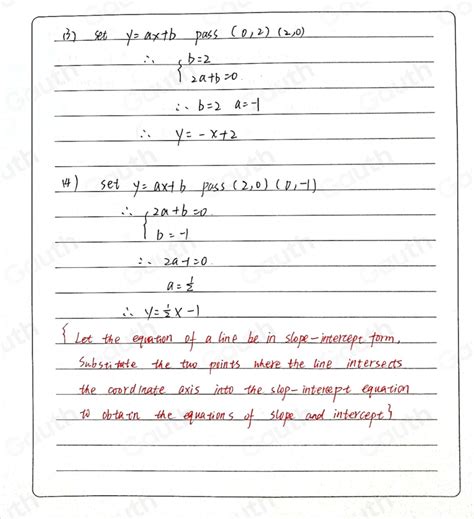 13) set y=ax+b pass (0,2) (2,0)
∴ { b=2
2a+b=0
∴ b=2 a=-1
∴ y=-x+2
14) set y=ax+b pass (2,0) (0,-1)
∴ { 2a+b=0
b=-1
∴ 2a-1=0
a=1/2
∴ y=1/2x-1
{ Let the equation of a line be in slope-intercept form,
Substitute the two points where the line intersects
the coordinate axis into the slop-intercept equation
to obtain the equations of slope and intercept }
Gauth